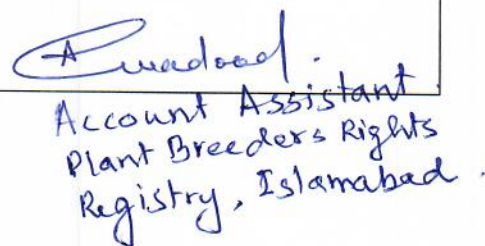 Account Assistant
Plant Breeders Rights
Registry, Islamabad.